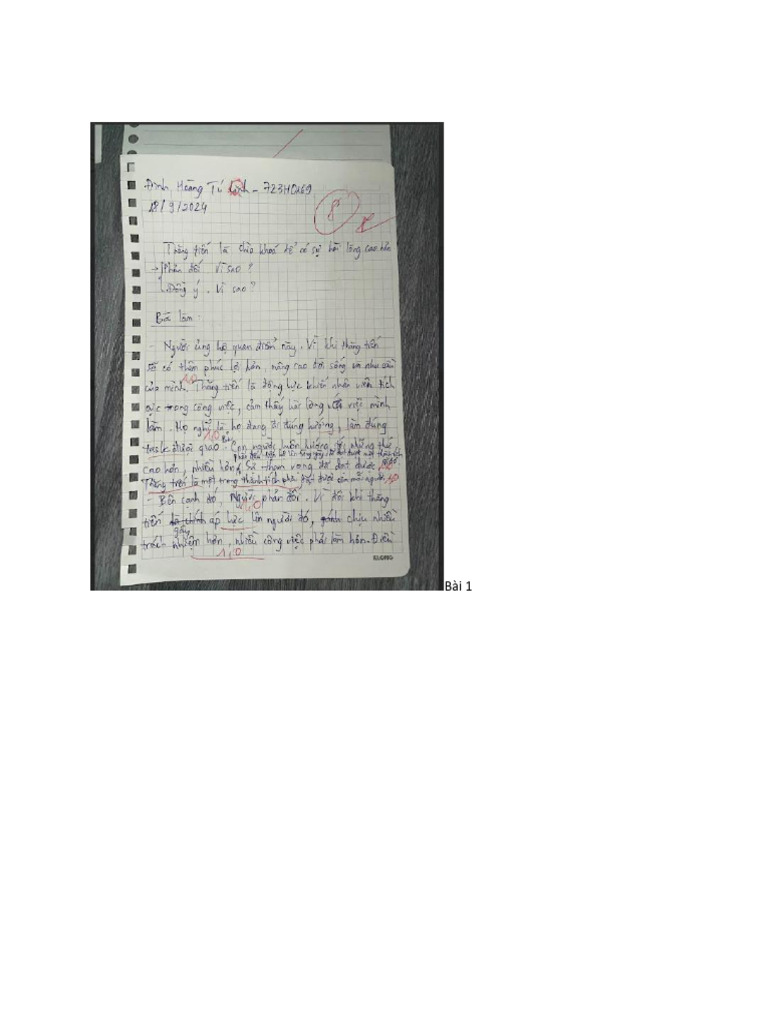 Đinh Hoàng Tú Linh - 723H0269
18/9/2024
8
Thăng tiến là chìa khoá để có sự hài lòng cao hơn
→ Phản đối Vì sao?
Đồng ý. Vì sao?
Bài làm:
- Người ủng hộ quan điểm này. Vì khi thăng tiến
sẽ có thêm phúc lợi hơn, nâng cao đời sống và nhu cầu
1,0
của mình. Thăng tiến là động lực khiến nhân viên tích
cực trong công việc, cảm thấy hài lòng với việc mình
làm. Họ nghĩ là họ đang đi đúng hướng, làm đúng
1,0
task được giao. Con người luôn hướng tới những thứ
cao hơn, nhiều hơn, sự tham vọng để đạt được
Thăng tiến là một trong thành tích phải đạt được của mỗi người. 1,0
- Bên cạnh đó, Người phản đối. Vì đôi khi thăng
1,0
tiến gây áp lực lên người đó, gánh chịu nhiều
trách nhiệm hơn, nhiều công việc phải làm hơn. Điều
1,0
KLONG
Bài 1